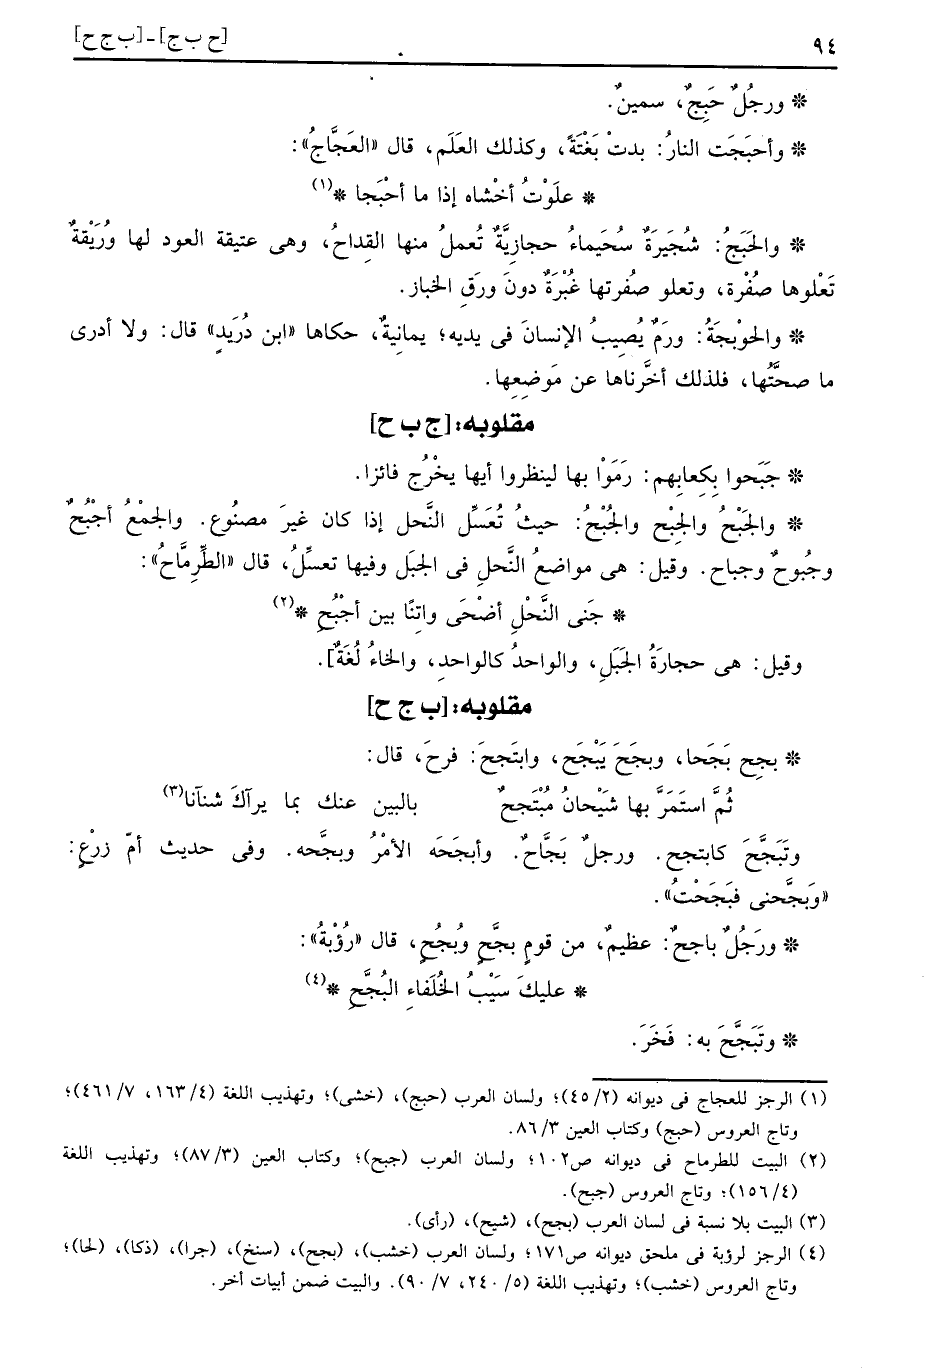 ٩٤
[ح ب ج] ـ [ب ج ح]
* ورجُلٌ حَبِجٌ، سمينٌ.
* وأحبَجَت النارُ: بدتْ بَغْتَةً، وكذلك العَلَم، قال «العَجَّاجُ»:
* علَوْتُ أخْشاه إذا ما أحْبَجا *(١)
* والحَبَجُ: شُجَيرَةٌ سُحَيماءُ حجازيَّةٌ تُعملُ منها القِداحُ، وهى عتيقة العود لها وُرَيْقةٌ
تَعْلوها صُفْرة، وتعلو صُفرتها غُبْرَةٌ دونَ ورَقِ الخباز.
* والحوْبجَةُ: ورَمٌ يُصِيبُ الإنسانَ فى يديه؛ يمانِيةٌ، حكاها «ابن دُرَيدٍ» قال: ولا أدرى
ما صحَّتُها، فلذلك أخَّرناها عن مَوضِعِها.
مقلوبه: [ج ب ح]
* جَبَحوا بِكعابِهم: رَمَوْا بها لينظروا أيها يخْرُج فائزا.
* والجَبْحُ والجِبْح والجُبْحُ: حيثُ تُعَسِّل النَّحل إذا كان غيرَ مصنُوع. والجمْعُ أجْبُحٌ
وجُبوحٌ وجباح. وقيل: هى مواضعُ النَّحلِ فى الجبَل وفيها تعسِّلُ، قال «الطِّرِمَّاحُ»:
* جَنى النَّحْلِ أضْحَى واتِنًا بين أجْبُحِ *(٢)
وقيل: هى حجارَةُ الجَبَلِ، والواحدُ كالواحدِ، والخاءُ لُغَةٌ].
مقلوبه: [ب ج ح]
* بجِح بَجَحا، وبجَحَ يَبْجَح، وابتَجحَ: فرحَ، قال:
ثُمَّ استَمَرَّ بها شَيْحانُ مُبْتَجحٌ بالبين عنك بما يرآكَ شنآنا(٣)
وتَبَجَّحَ كابتجح. ورجلٌ بَجَّاحٌ. وأبجَحَه الأمْرُ وبجَّحه. وفى حديث أمّ زرْعٍ:
«وَبجَّحنى فبَجَحْتُ».
* ورَجُلٌ باجحٌ: عظيمٌ، من قومٍ بجَّحٍ وبُجُحٍ، قال «رُؤْبةُ»:
* عليكَ سَيْبُ الخُلَفاءِ البُجَّحِ *(٤)
* وتَبَجَّحَ به: فَخَرَ.
(١) الرجز للعجاج فى ديوانه (٢/ ٤٥)؛ ولسان العرب (حبج)، (خشى)؛ وتهذيب اللغة (٤/ ١٦٣، ٧/ ٤٦١)؛
وتاج العروس (حبج) وكتاب العين ٣/ ٨٦.
(٢) البيت للطرماح فى ديوانه ص١٠٢؛ ولسان العرب (جبح)؛ وكتاب العين (٣/ ٨٧)؛ وتهذيب اللغة
(٤/ ١٥٦)؛ وتاج العروس (جبح).
(٣) البيت بلا نسبة فى لسان العرب (بجح)، (شيح)، (رأى).
(٤) الرجز لرؤبة فى ملحق ديوانه ص١٧١؛ ولسان العرب (خشب)، (بجح)، (سنخ)، (جرا)، (ذكا)، (لحا)؛
وتاج العروس (خشب)؛ وتهذيب اللغة (٥/ ٢٤٠، ٧/ ٩٠). والبيت ضمن أبيات أخر.